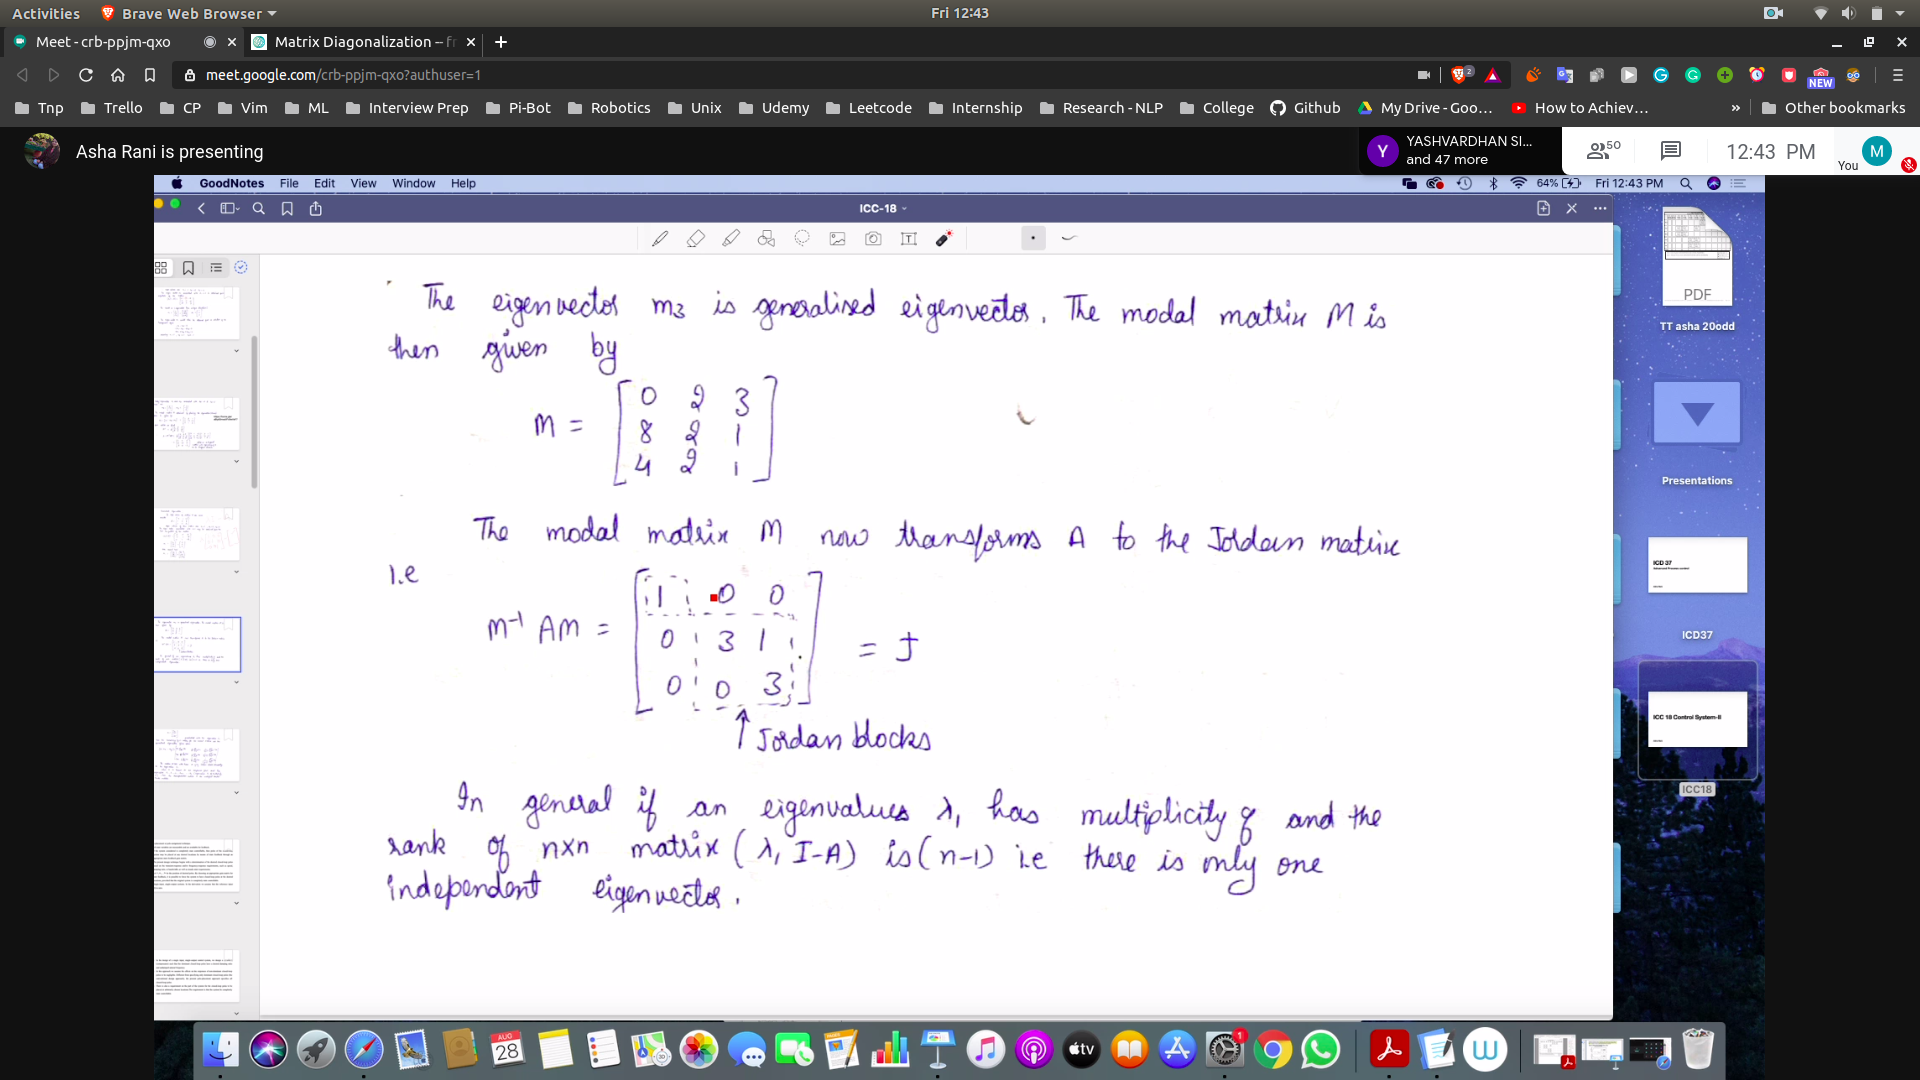 Activities Brave Web Browser Fri 12:43
Meet - crb-ppjm-qxo Matrix Diagonalization -- fr
meet.google.com/crb-ppjm-qxo?authuser=1 2 NEW
Tnp Trello CP Vim ML Interview Prep Pi-Bot Robotics Unix Udemy Leetcode Internship Research - NLP College Github My Drive - Goo... How to Achiev... » Other bookmarks
Asha Rani is presenting
Y YASHVARDHAN SI...
and 47 more
50 12:43 PM You M
GoodNotes File Edit View Window Help 64% Fri 12:43 PM
ICC-18
The eigenvector m3 is generalised eigenvector. The modal matrix M is
then given by
M = [ 0 2 3
8 2 1
4 2 1 ]
The modal matrix M now transforms A to the Jordan matrix
i.e
M⁻¹ AM = [ 1 0 0
0 3 1
0 0 3 ] = J
↑ Jordan blocks
In general if an eigenvalues λ₁ has multiplicity q and the
rank of n×n matrix (λ₁ I-A) is (n-1) i.e there is only one
independent eigenvector.
PDF
TT asha 20odd
Presentations
ICD 37
ICD37
ICC 18 Control System-II
ICC18
AUG
28
tv
1